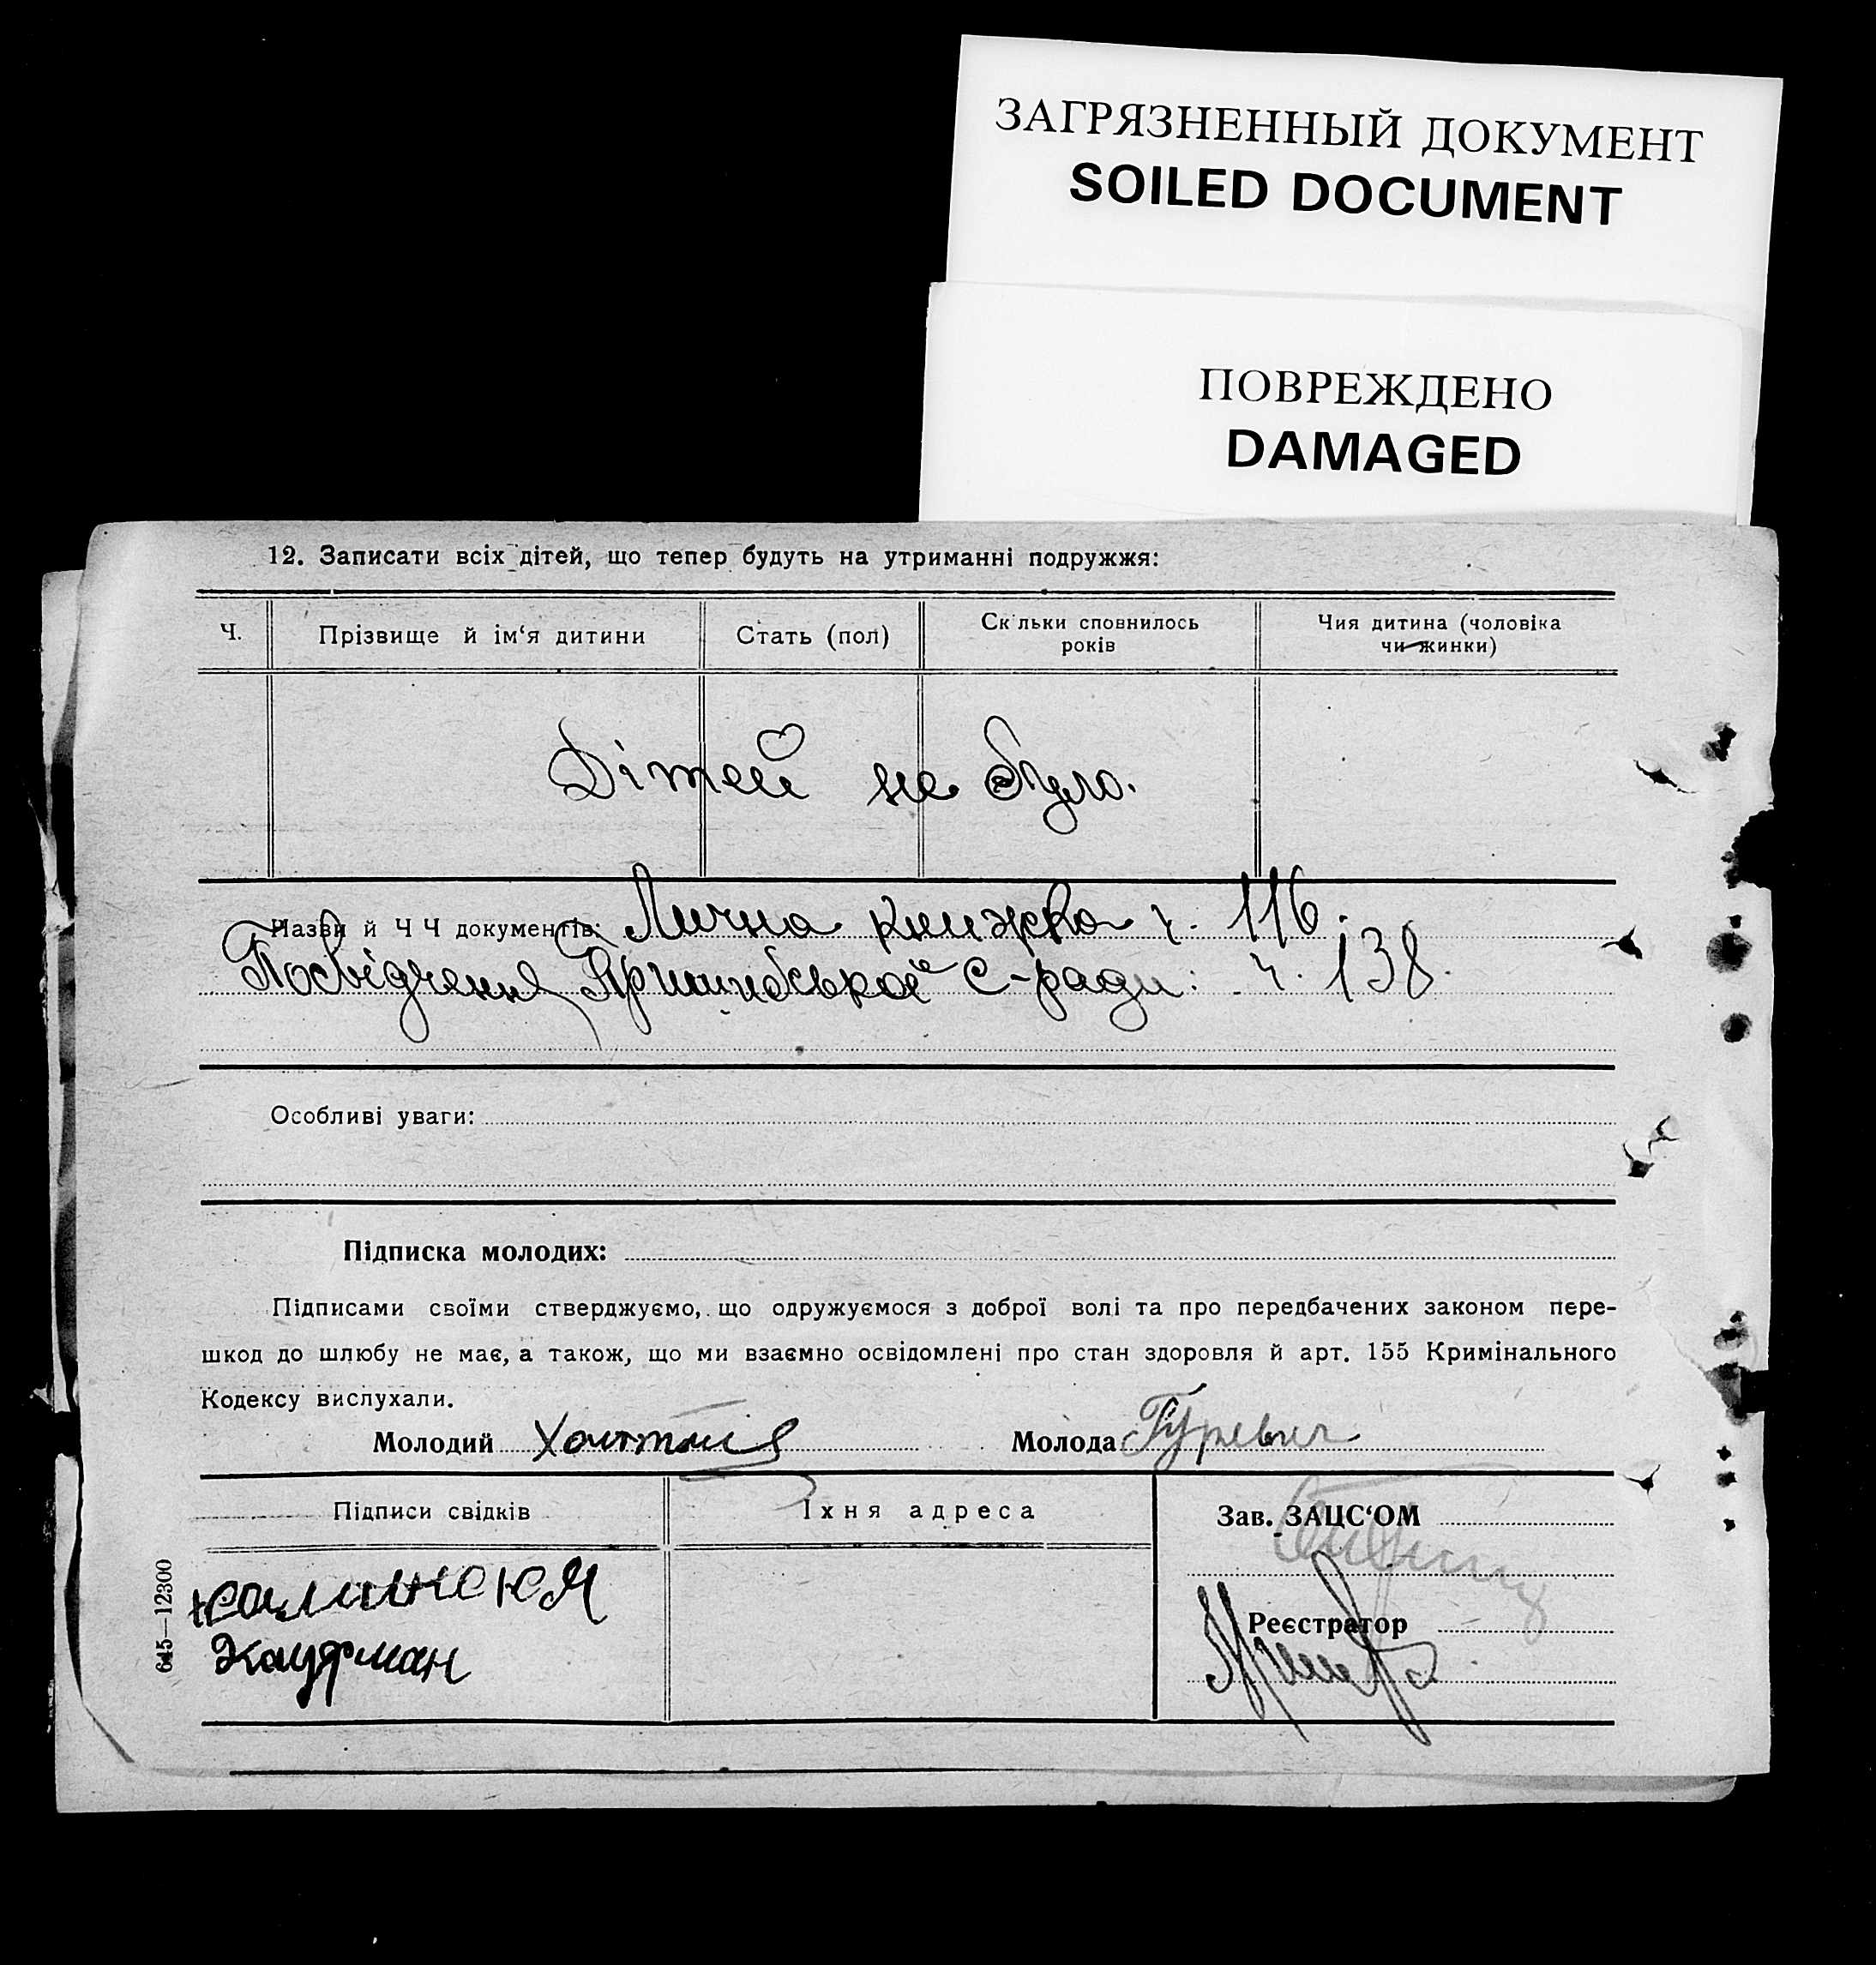 ЗАГРЯЗНЕННЫЙ ДОКУМЕНТ
SOILED DOCUMENT
ПОВРЕЖДЕНО
DAMAGED
12. Записати всіх дітей, що тепер будуть на утриманні подружжя:
Ч. Прізвище й ім‘я дитини Стать (пол) Скільки сповнилось років Чия дитина (чоловіка чи жинки)
Дітей не було.
Назви й Ч Ч документів: Лична книжка ч. 116.
Посвідчення Пришибської С-ради: ч. 138.
Особливі уваги:
Підписка молодих:
Підписами своїми стверджуємо, що одружуємося з доброї волі та про передбачених законом пере-
шкод до шлюбу не має, а також, що ми взаємно освідомлені про стан здоровля й арт. 155 Кримінального
Кодексу вислухали.
Молодий Молода Гуревич
Підписи свідків Їхня адреса Зав. ЗАЦС‘ОМ
Реєстратор
Кауфман
645—12300